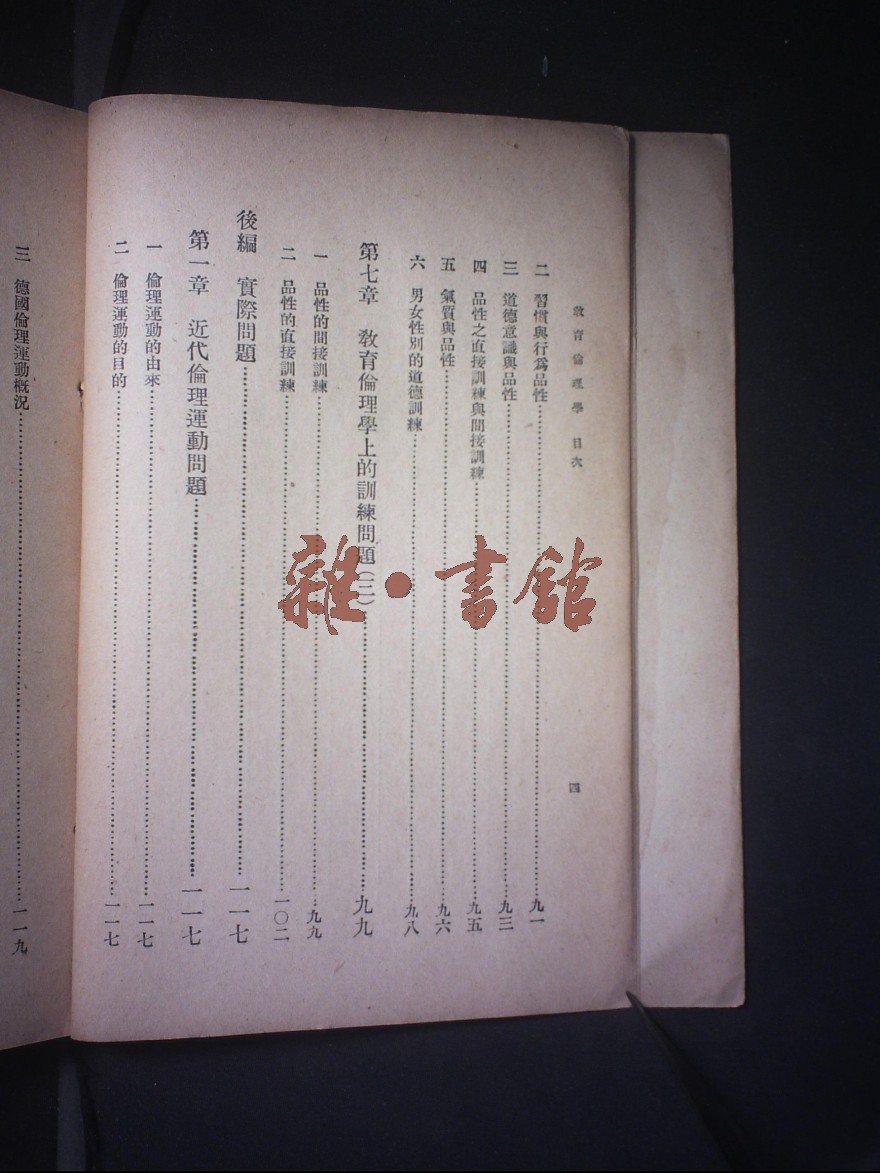 教育倫理學 目次
四
二 習慣與行爲品性……九一
三 道德意識與品性……九三
四 品性之直接訓練與間接訓練……九五
五 氣質與品性……九六
六 男女性別的道德訓練……九八
第七章 教育倫理學上的訓練問題(二)……九九
一 品性的間接訓練……九九
二 品性的直接訓練……一〇二
後編 實際問題……一一七
第一章 近代倫理運動問題……一一七
一 倫理運動的由來……一一七
二 倫理運動的目的……一一七
三 德國倫理運動概況……一一九
雜·書館